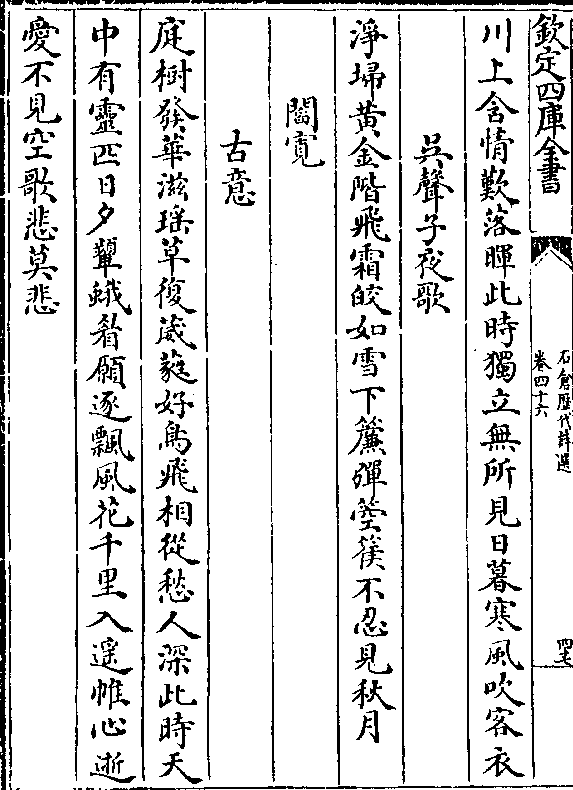 欽定四庫全書
石倉歷代詩選
卷四十六
川上含情歎落暉此時獨立無所見日暮寒風吹客衣
吳聲子夜歌
淨埽黃金階飛霜皎如雪下簾彈箜篌不忍見秋月
閻寛
古意
庭樹發華滋瑤草復葳蕤好鳥飛相從愁人深此時天
中有靈匹日夕顰蛾眉願逐飄風花千里入遥帷心逝
愛不見空歌悲莫悲